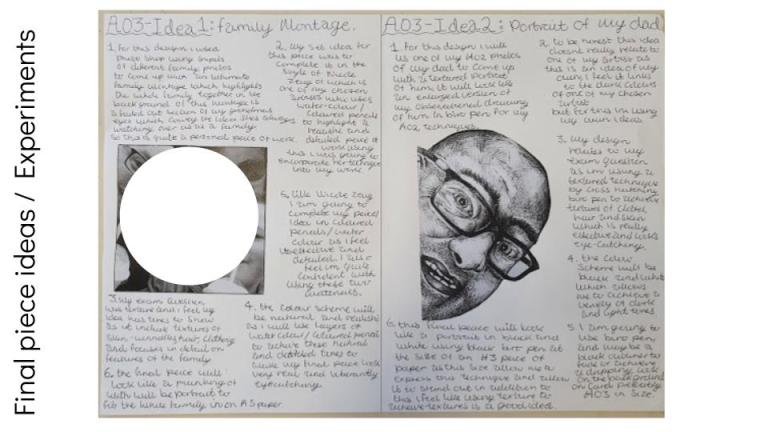 Final piece ideas / Experiments
A03-Idea1: family Montage.
1. For this design I used
Photo Shop using
of different family photos
to come up with an
family montage which highlights
the whole family together in the
background of this montage is
a faded out section of my grandmas
eyes which convey the idea she's always
watching over us as a family
so this is quite a personal piece of work.
2. My idea for
this piece was to
complete it in the
style of Nicole
which is
one of my chosen
artists who uses
water colour /
coloured pencils
to highlight a
realistic and
detailed piece of
work using
this I was going to
incorporate her technique
into my work.
5. Like Nicole
I am going to
complete my piece/
idea in coloured
pencils / water
colour as I feel
effective and
detailed. I also
feel im quite
confident with
using these two
materials.
3. My exam question
was texture and I feel my
idea links to
as it include textures of
skin, wrinkles, hair, clothing
and focuses in detail on
features of the family
4. the colour scheme will
be natural and realistic
as I will use layers of
water colour / coloured pencil
to achieve these neutral
and detailed tones to
make my final piece look
very real and
eye catching.
6. the final piece will
look like a
with will be portrait to
fit the whole family in on A3 paper.
A03-Idea2: Portrait of my dad
1. For this design I will
use one of my A02 photos
of my dad to come up
with a textured portrait
of him, it will look like
an enlarged version of
my drawing
of him in biro pen for my
A02 techniques.
2. to be honest this idea
doesnt really relate to
one of my artists as
this is an idea of my
own, I feel it links
to the dark colours
of one of my chosen
artist
but for this im using
my own ideas
3. My design
relates to my
exam question
as im using a
textured technique
by cross hatching
biro pen to achieve
textures of
hair and skin
which is really
effective and looks
eye-catching.
4. the colour
scheme will be
black and white
which allows
me to achieve a
variety of dark
and light tones
5. I am going to
use biro pen
and maybe a
black
to achieve
a dripping
on the background
on card preferably
A03 in size.
6. this final piece will look
like a portrait in black and
white using black biro pen at
the size of an A3 piece of
paper as this size allow me to
express this technique and allow
it to stand out in addition to
this I feel like using texture to
achieve textures is a good idea.